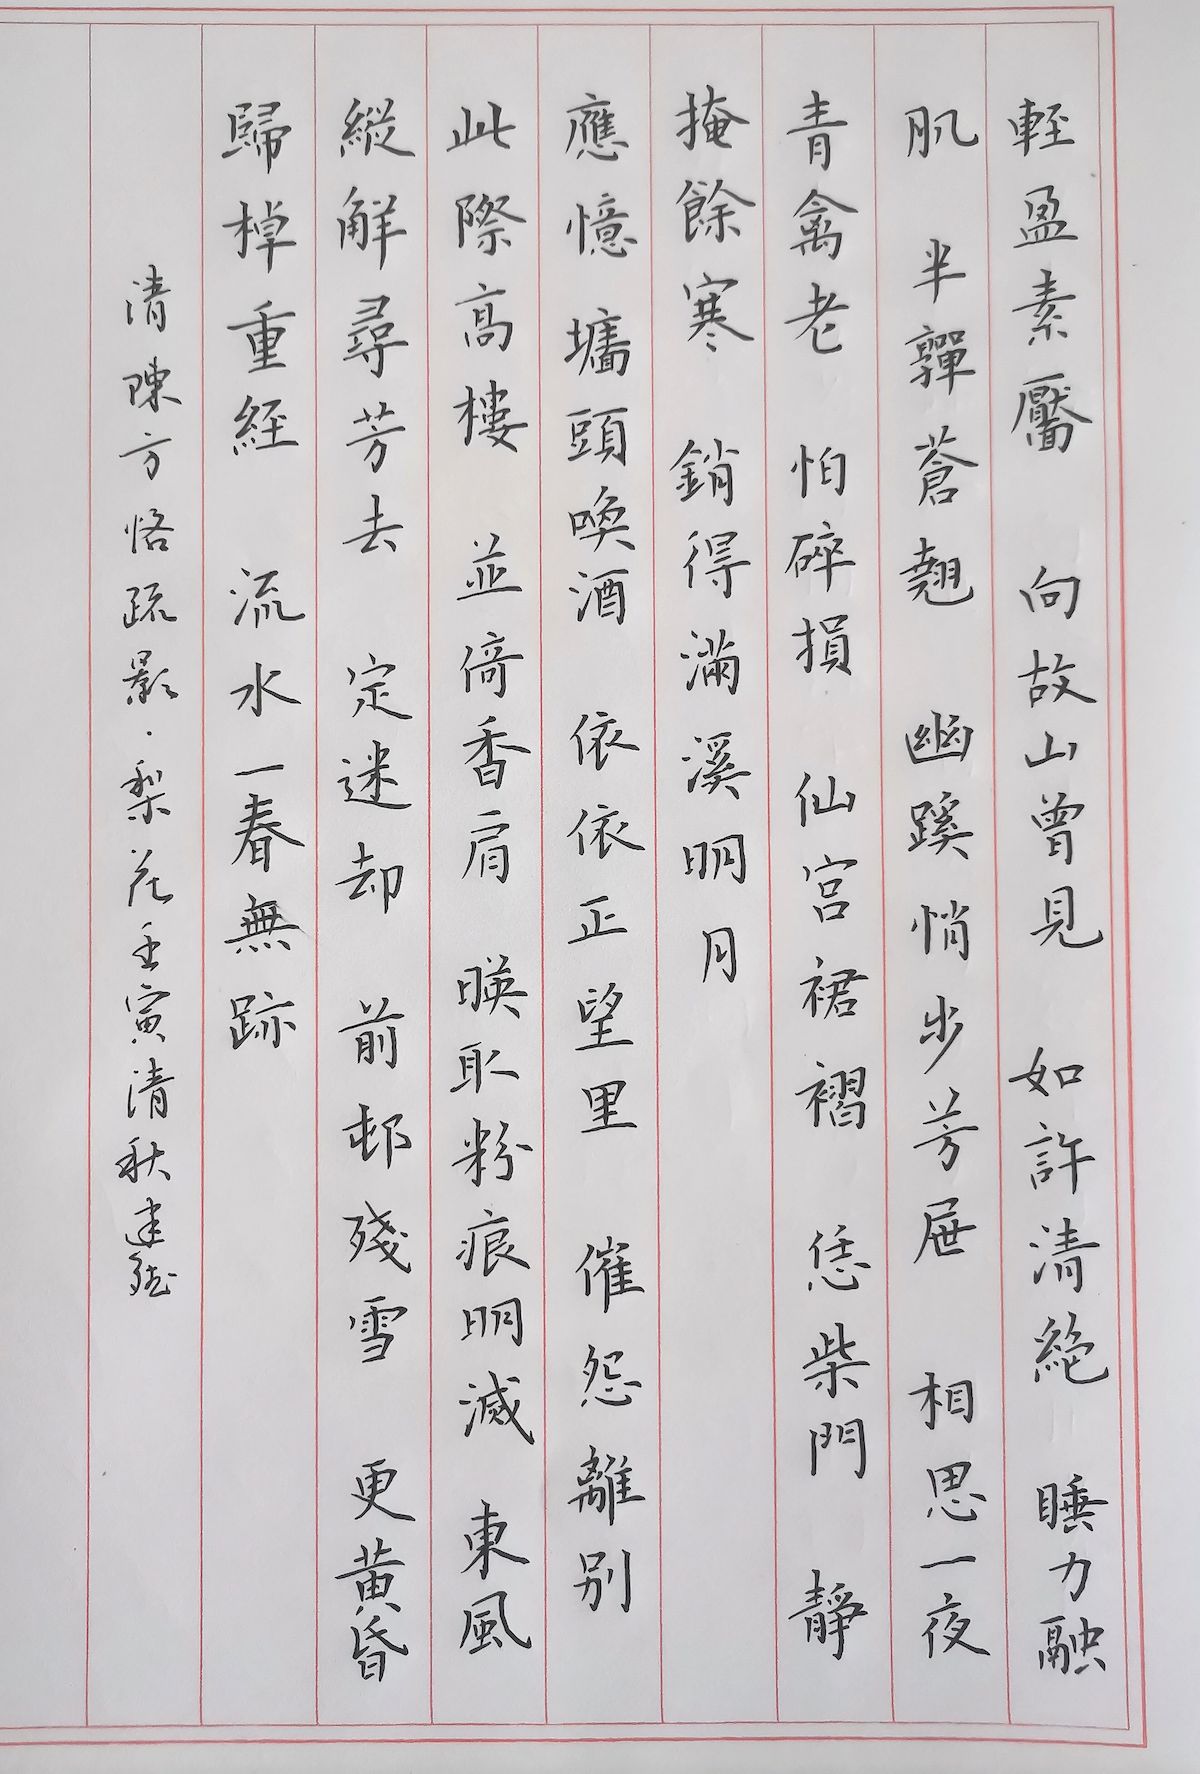 輕盈素靨　向故山曾見　如許清絶　睡力融
肌　半嚲蒼翹　幽蹊悄步芳屧　相思一夜
青禽老　怕碎損　仙宮裙褶　恁柴門　靜
掩餘寒　銷得滿溪明月
應憶墻頭喚酒　依依正望里　催怨離別
此際高樓　並倚香肩　暎取粉痕明滅　東風
縱解尋芳去　定迷却　前邨殘雪　更黄昏
歸棹重經　流水一春無跡
清陳方恪疏影·梨花壬寅清秋建